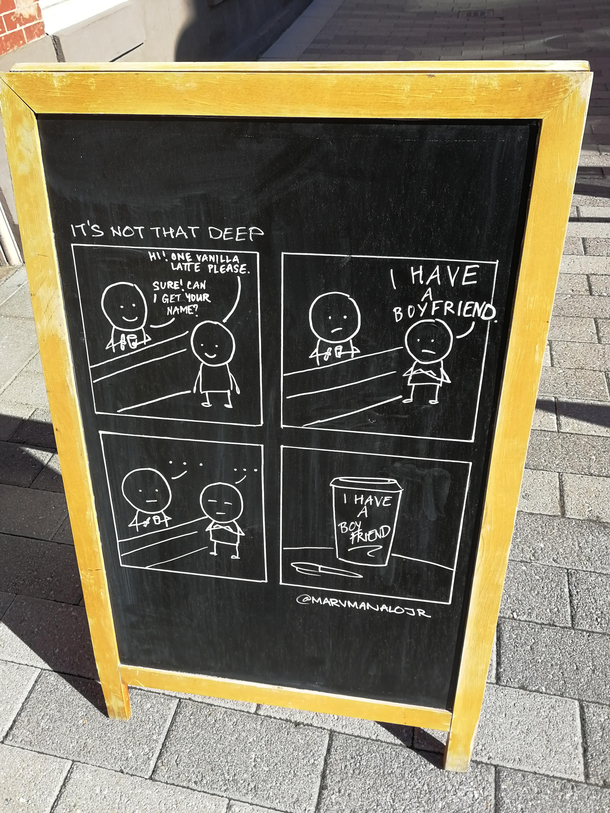 IT'S NOT THAT DEEP
HI! ONE VANILLA
LATTE PLEASE.
SURE! CAN
I GET YOUR
NAME?
I HAVE
A
BOYFRIEND.
...
...
I HAVE
A
BOY
FRIEND
@MARVMANALOJR